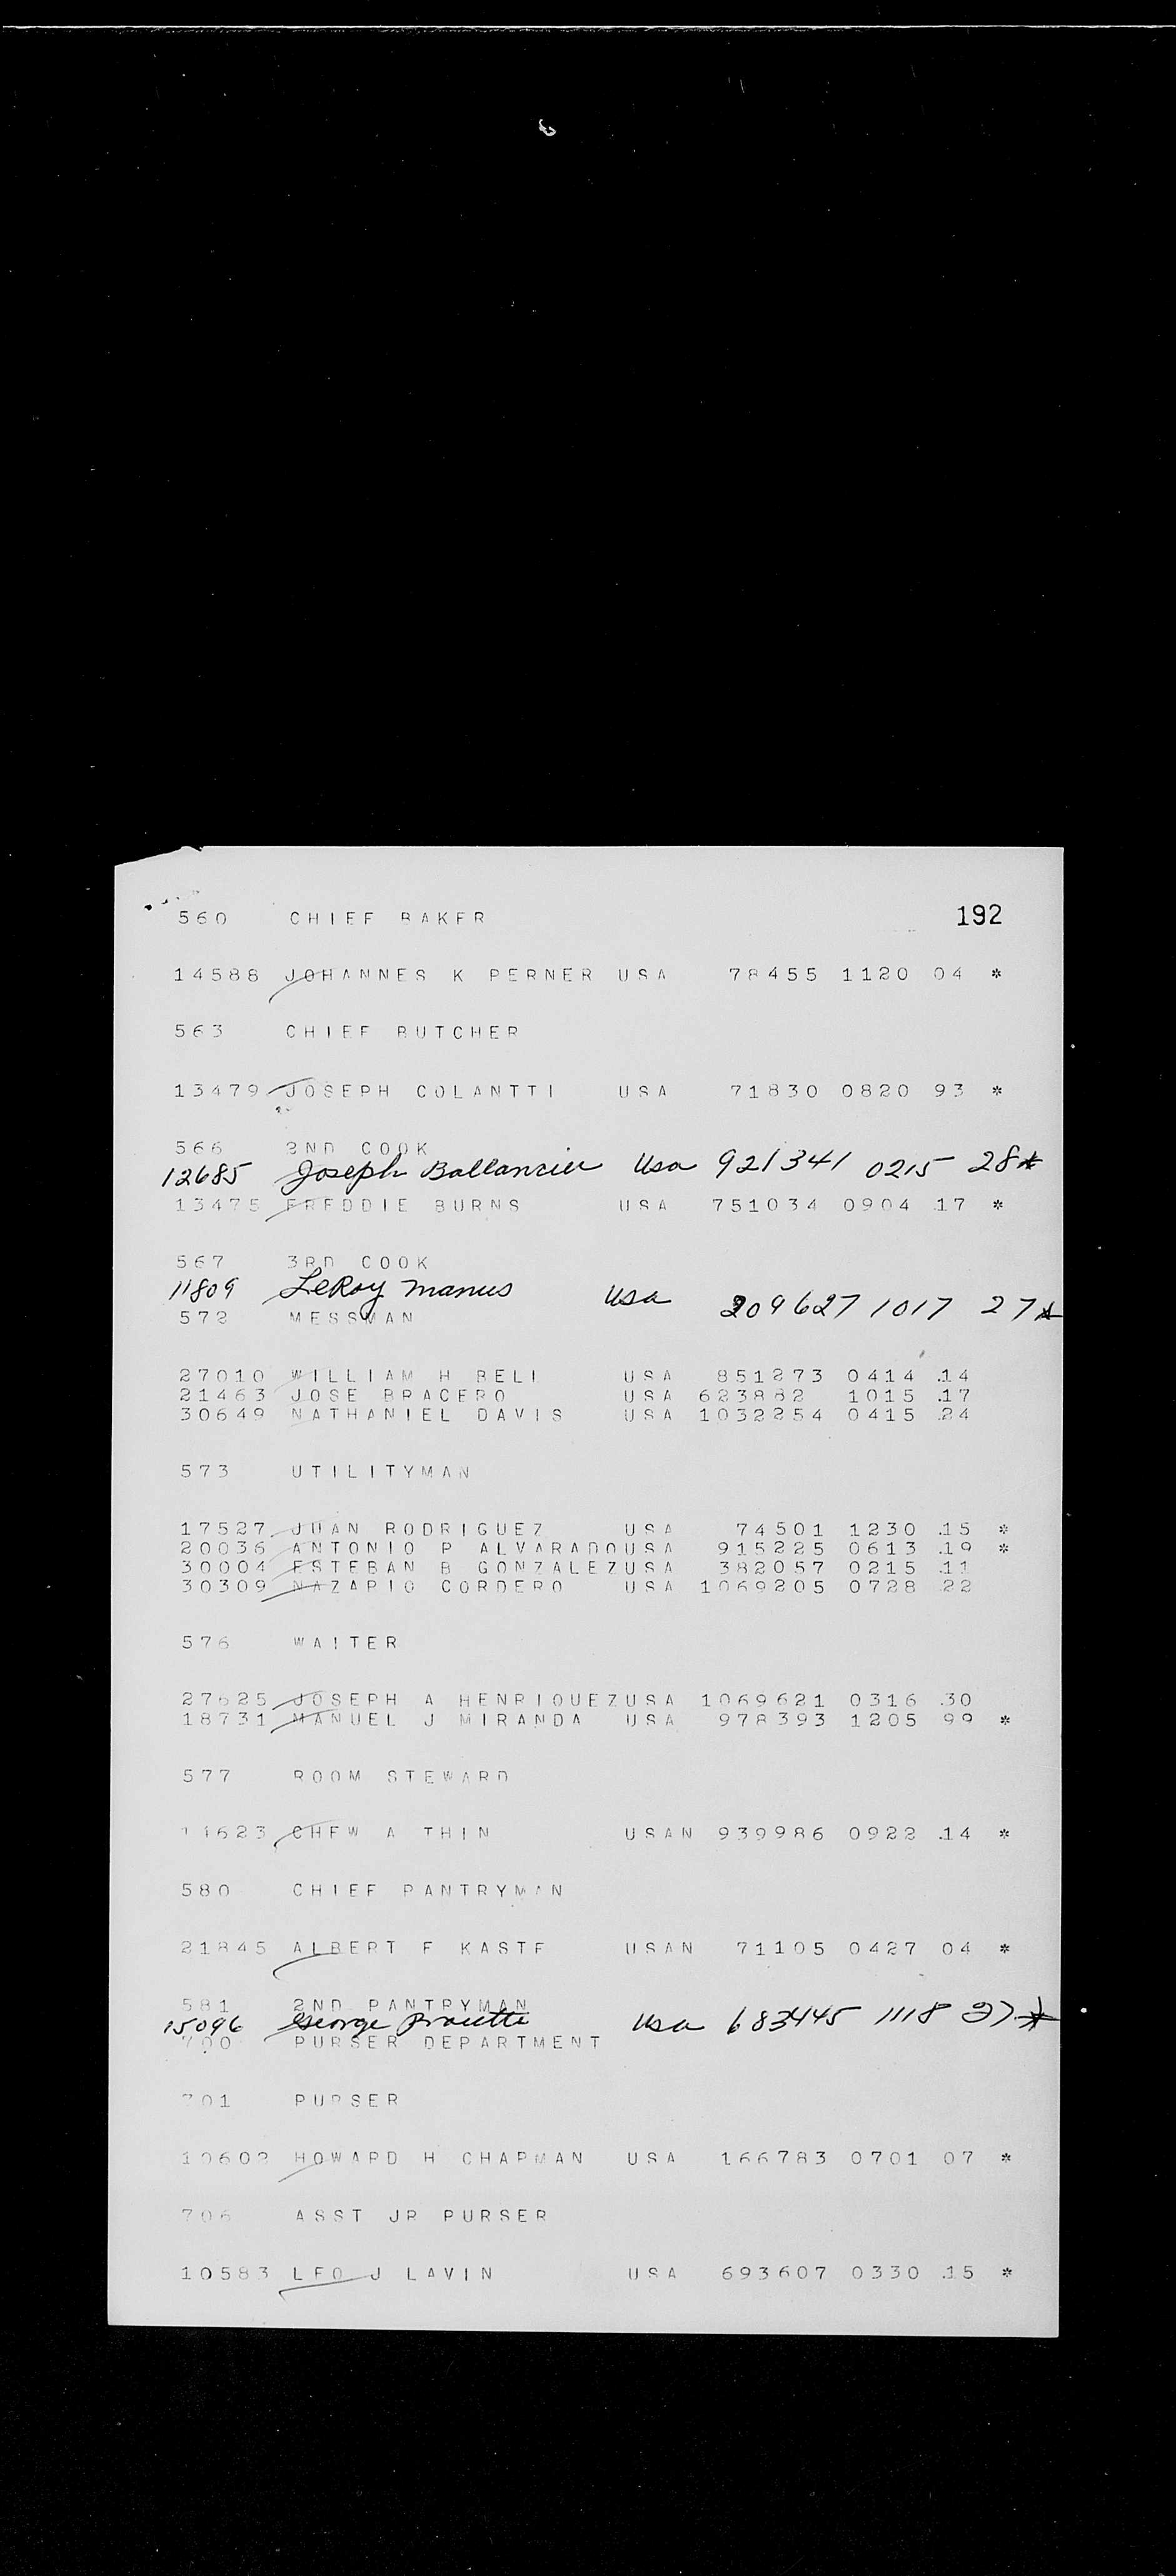 560 CHIEF BAKER 192
14588 JOHANNES K PERNER USA 78455 1120 04 *
563 CHIEF BUTCHER
13479 JOSEPH COLANTTI USA 71830 0820 93 *
566 2ND COOK
12685 Joseph Usa 921341 0215 28*
13475 FREDDIE BURNS USA 751034 0904 .17 *
567 3RD COOK
11809 LeRoy Manus Usa 209627 1017 27*
572 MESSMAN
27010 WILLIAM H BELL USA 851273 0414 .14
21463 JOSE BRACERO USA 623882 1015 .17
30649 NATHANIEL DAVIS USA 1032254 0415 .24
573 UTILITYMAN
17527 JUAN RODRIGUEZ USA 74501 1230 .15 *
20036 ANTONIO P ALVARADOUSA 915225 0613 .19 *
30004 ESTEBAN B GONZALEZUSA 382057 0215 .11
30309 NAZARIO CORDERO USA 1069205 0728 .22
576 WAITER
27625 JOSEPH A HENRIQUEZUSA 1069621 0316 .30
18731 MANUEL J MIRANDA USA 978393 1205 99 *
577 ROOM STEWARD
14623 CHEW A THIN USAN 939986 0922 .14 *
580 CHIEF PANTRYMAN
21845 ALBERT F KASTE USAN 71105 0427 04 *
581 2ND PANTRYMAN
15096 George Usa 683445 1118 27*
700 PURSER DEPARTMENT
701 PURSER
10602 HOWARD H CHAPMAN USA 166783 0701 07 *
706 ASST JR PURSER
10583 LEO J LAVIN USA 693607 0330 .15 *